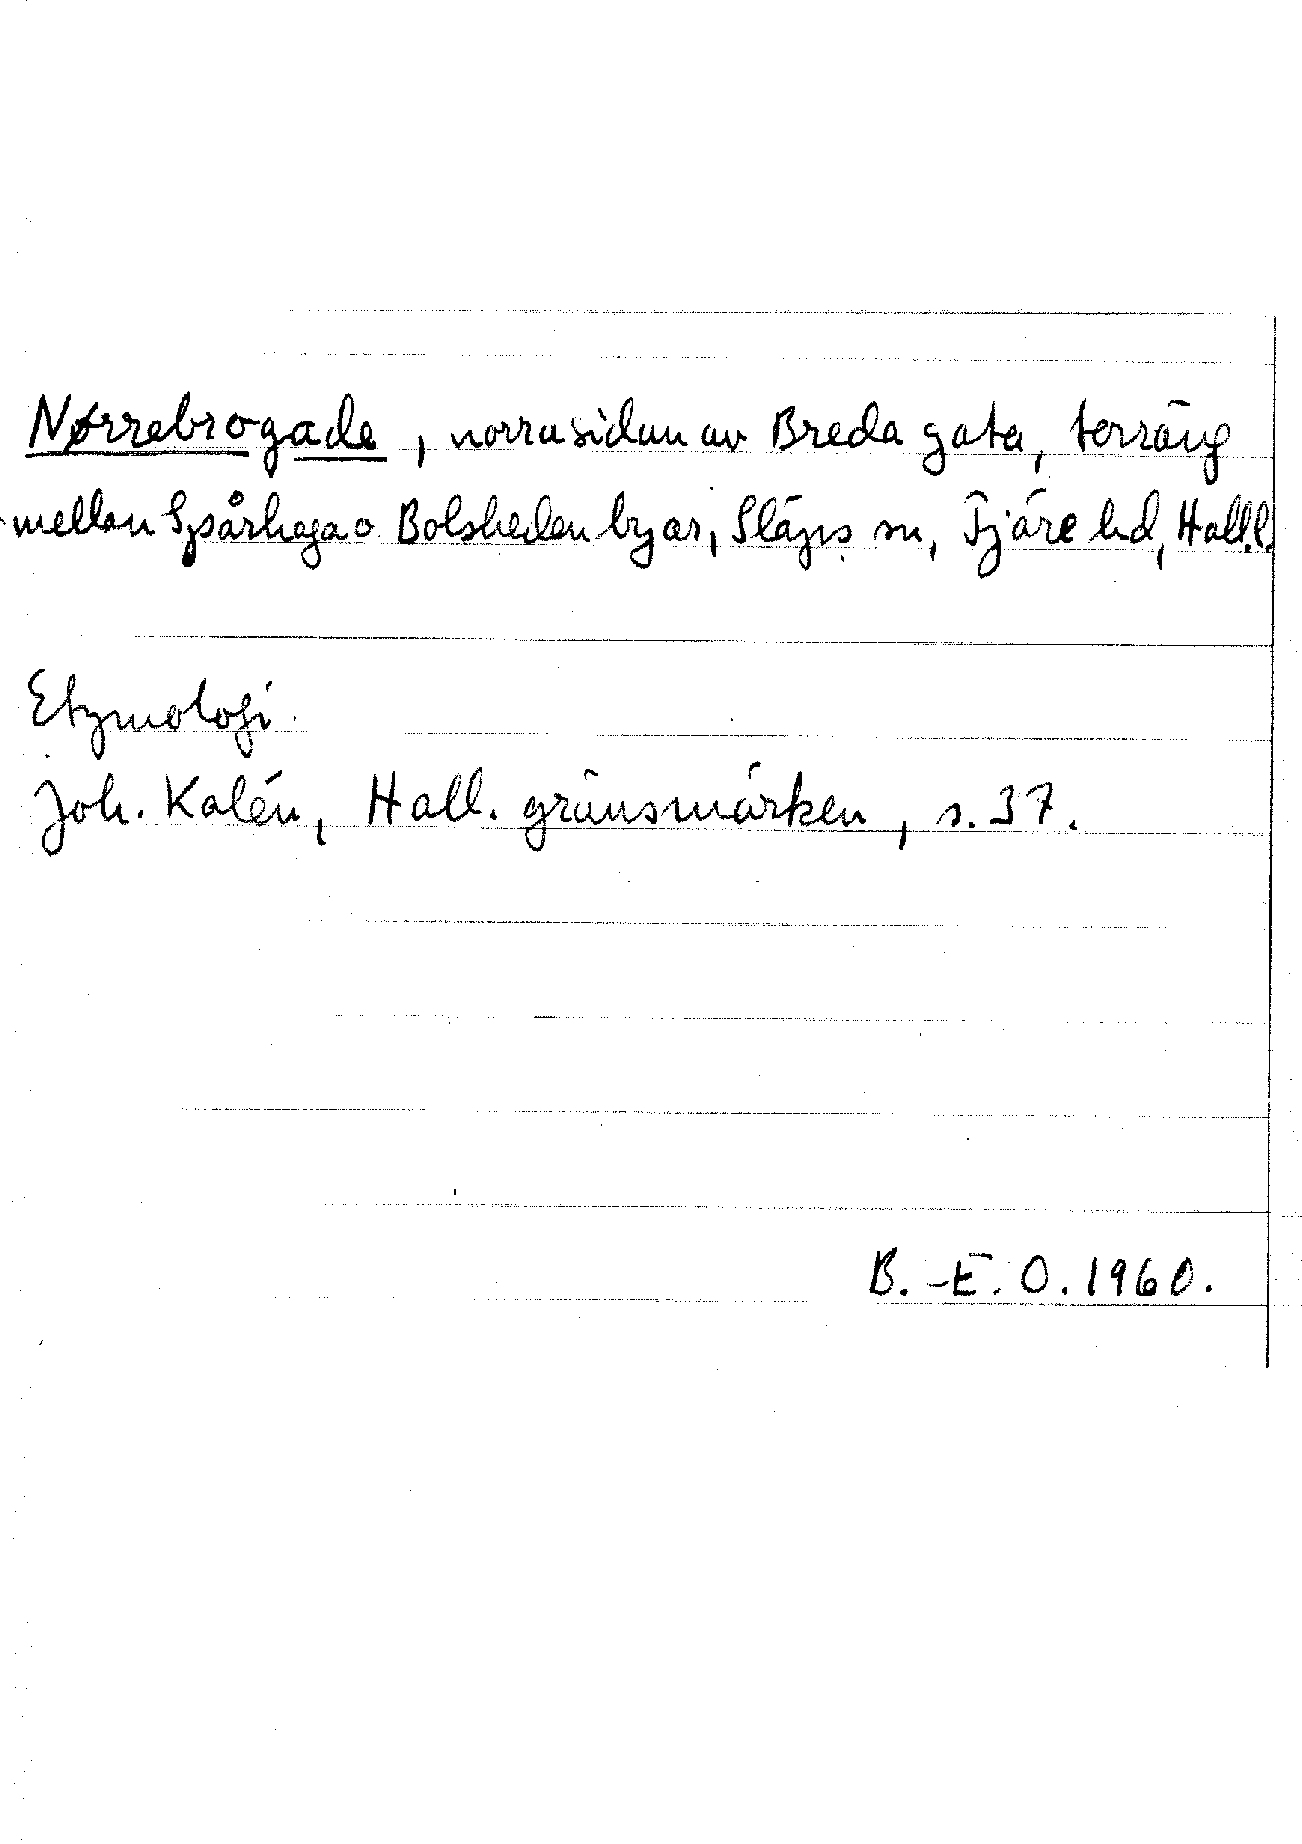 Nørrebrogade, norra sidan av Breda gata, terräng
mellan Spårhaga o Bolsheden byar, Släps sn, Fjäre hd, Hall.
Etymologi.
Joh. Kalén, Hall. gränsmärken, s. 37.
B.-E. O. 1960.